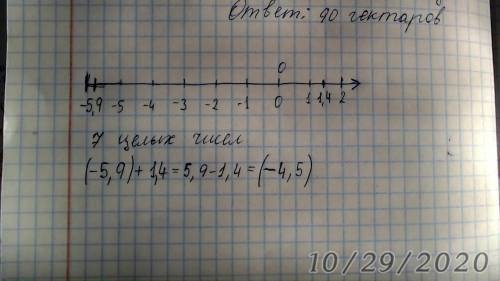 Ответ: 90 гектаров
0
-5,9 -5 -4 -3 -2 -1 0 1 1,4 2
7 целых чисел
(-5,9)+1,4=5,9-1,4=(-4,5)
10/29/2020